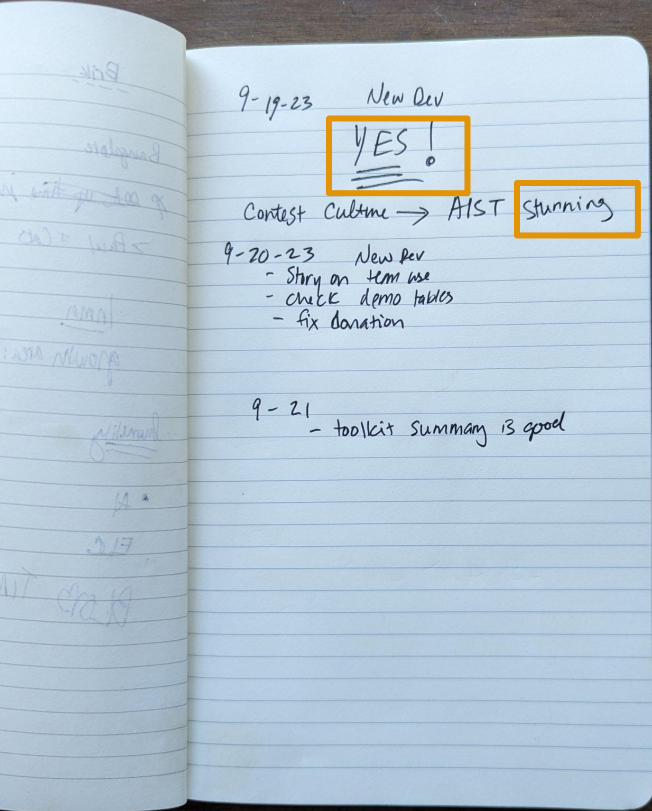 9-19-23 New Dev
YES!
Contest Culture → AIST stunning
9-20-23 New Dev
- Story on team use
- check demo tables
- fix donation
9-21
- toolkit summary is good